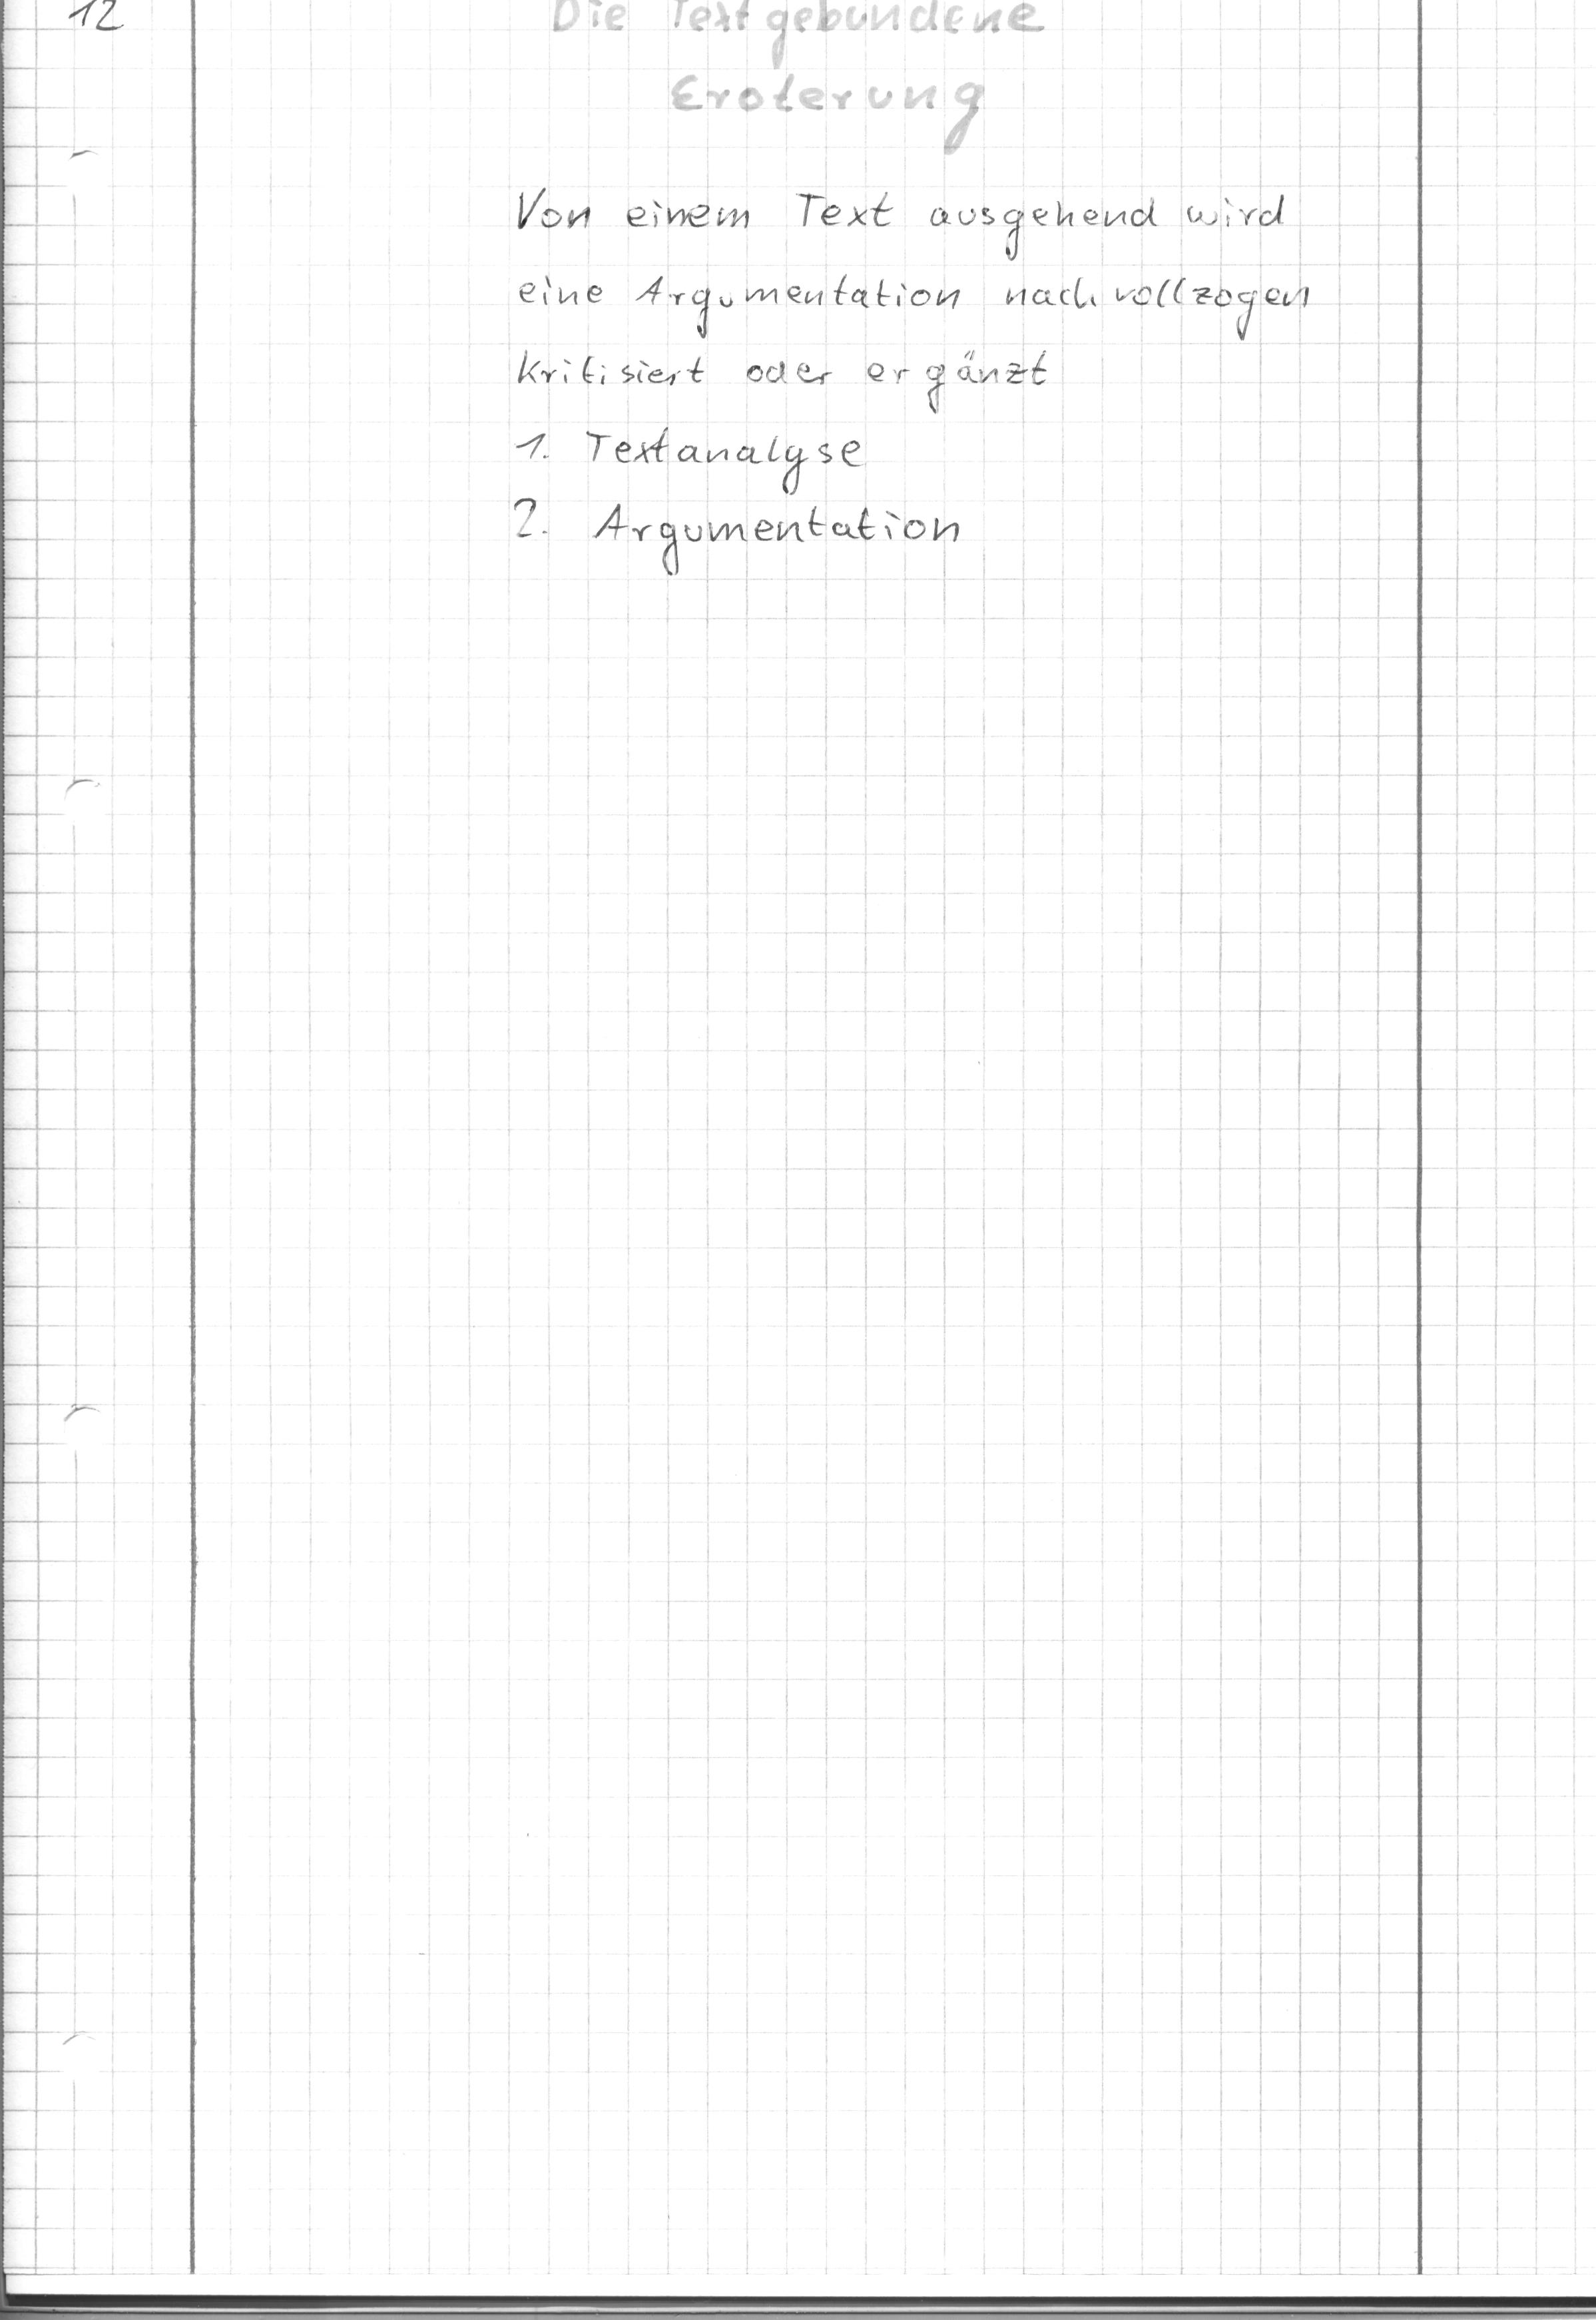 12
Die Textgebundene
Eroterung
Von einem Text ausgehend wird
eine Argumentation nachvollzogen
kritisiert oder ergänzt
1. Textanalyse
2. Argumentation